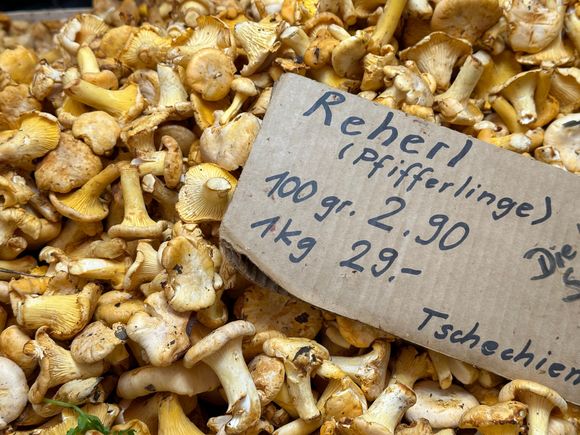 Reherl
(Pfifferlinge)
100 gr. 2.90
1 kg 29.-
Die
Tschechien